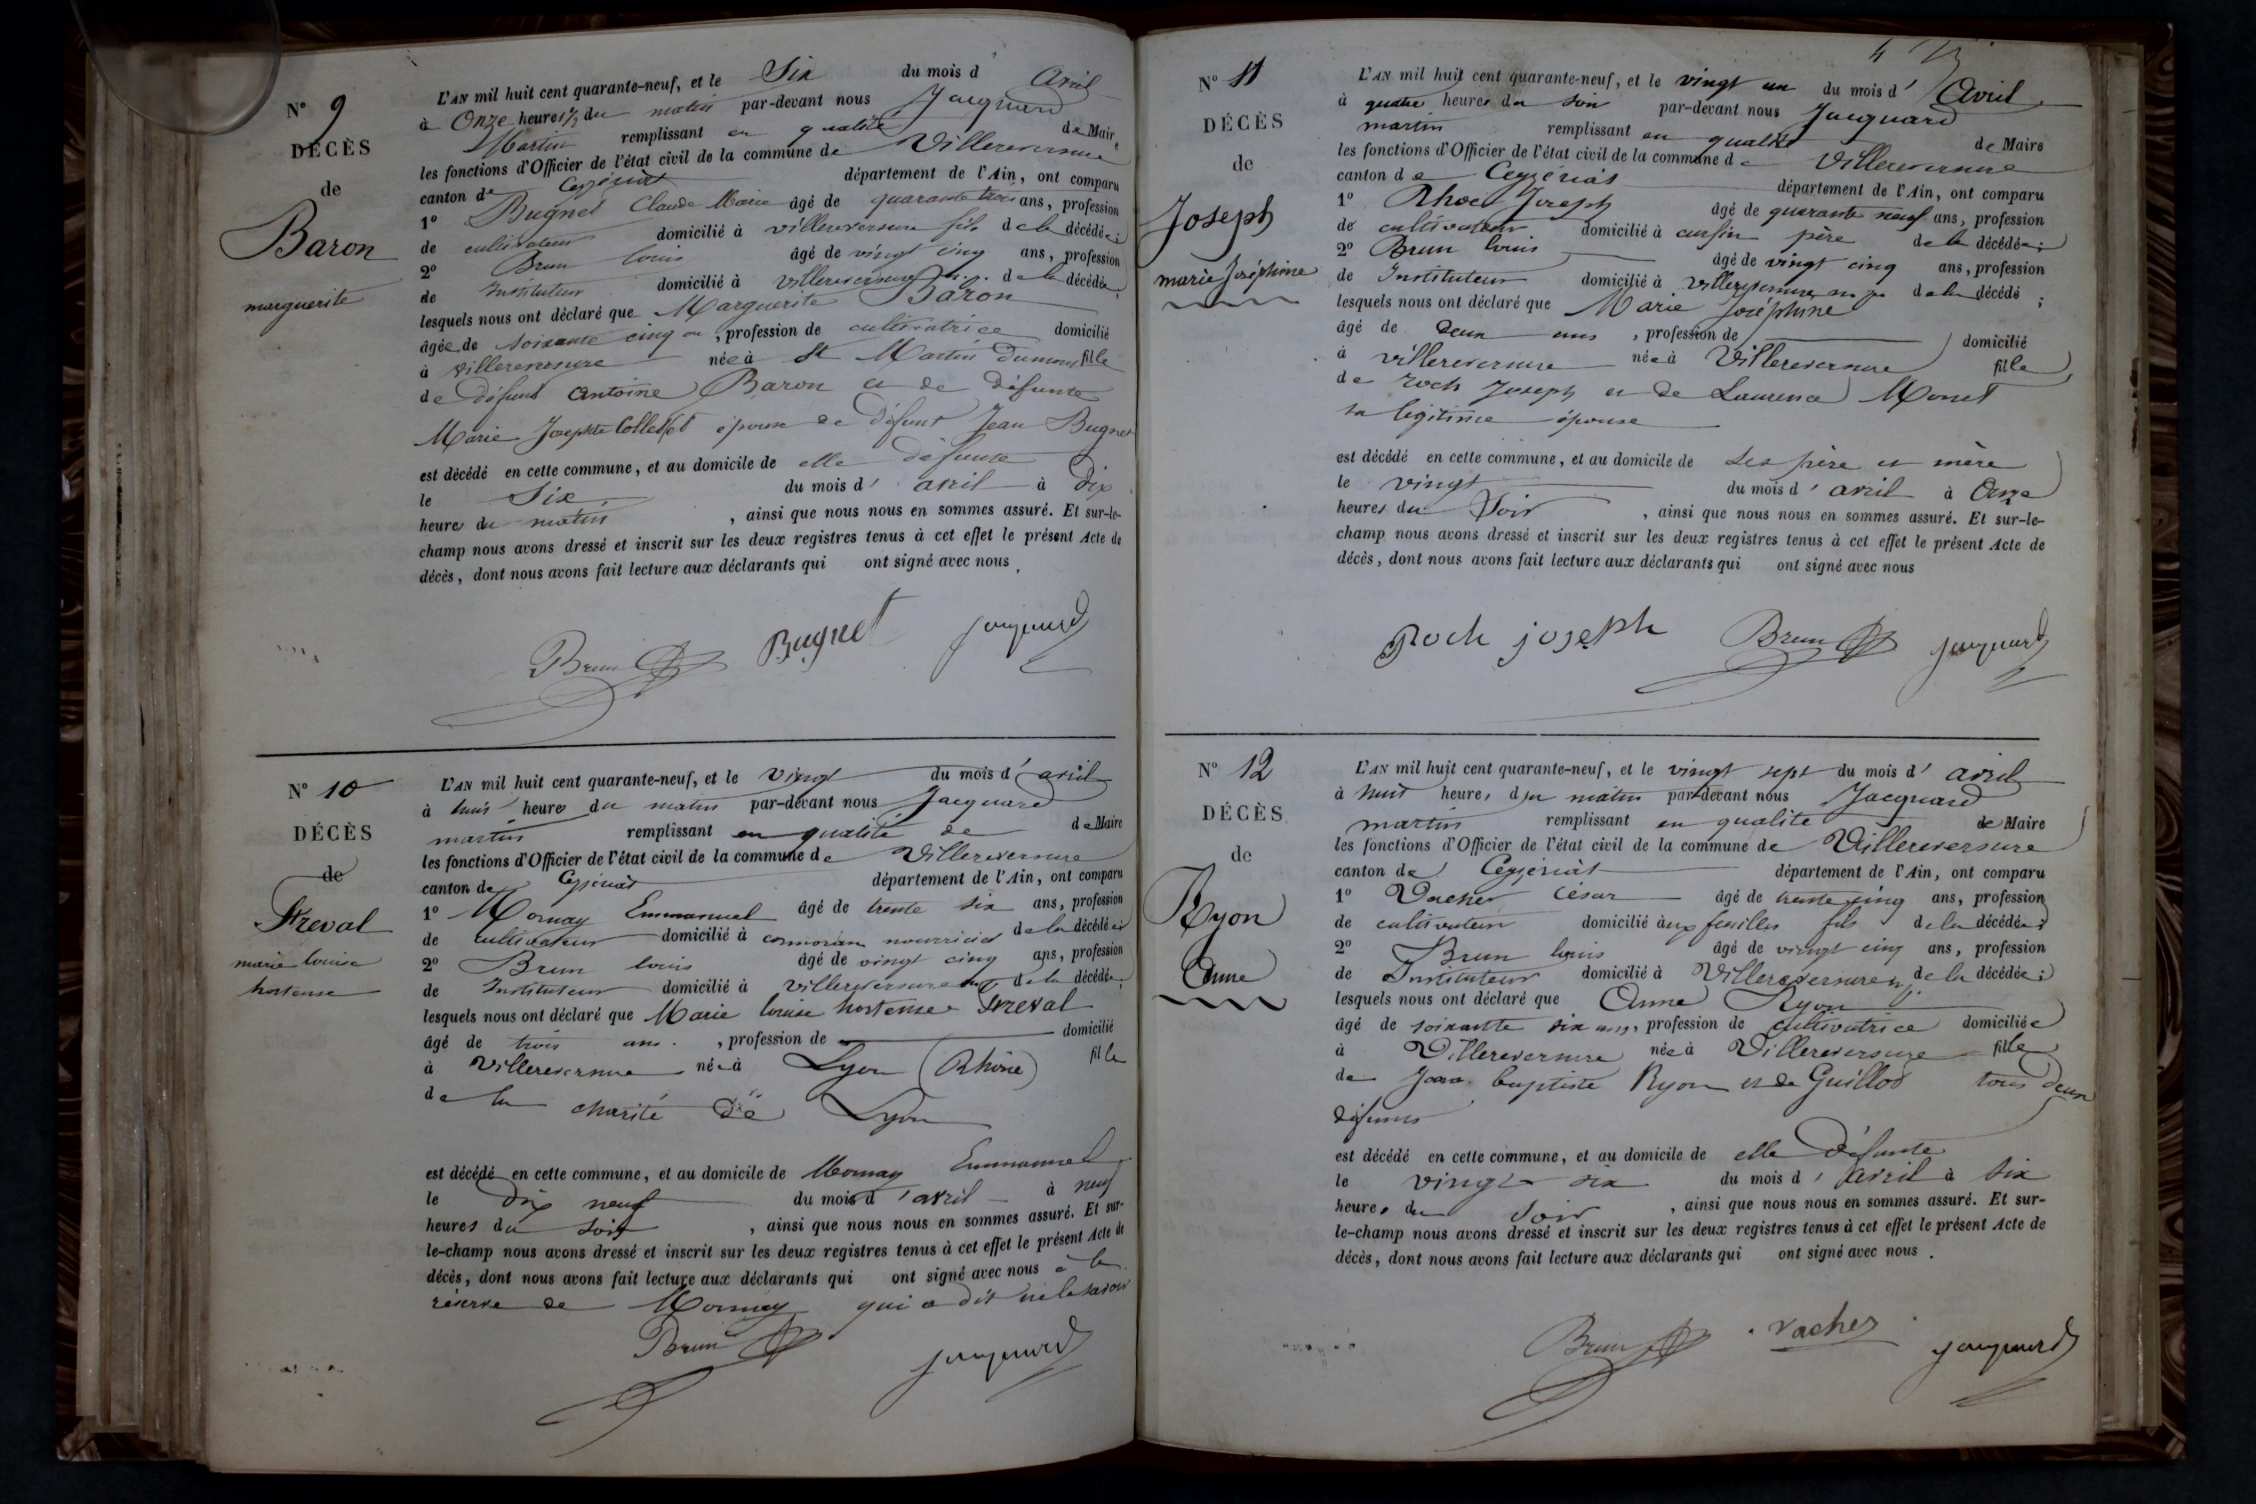 N° 9
DÉCÈS
de
Baron
marguerite
L'AN mil huit cent quarante-neuf, et le Six du mois d avril
à Onze heures ½ du matin par-devant nous Jacquard
Martin remplissant en qualité de Maire
les fonctions d'Officier de l'état civil de la commune de Villereversure
canton de Ceyzériat département de l'Ain, ont comparu
1° Bugnet Claude Marie âgé de quarante trois ans, profession
de cultivateur domicilié à villereversure fils de la décédée;
2° Brun louis âgé de vingt cinq ans, profession
de Instituteur domicilié à villereversure de la décédée;
lesquels nous ont déclaré que Marguerite Baron
âgée de soixante cinq an, profession de cultivatrice domicilié
à villereversure née à St Martin Dumont fille
de défunt Antoine Baron et de défunte
Marie Josephte Collettet épouse de Défunt Jean Bugnet
est décédé en cette commune, et au domicile de elle défunte
le Six du mois d' avril à dix
heures du matin, ainsi que nous nous en sommes assuré. Et sur-le-
champ nous avons dressé et inscrit sur les deux registres tenus à cet effet le présent Acte de
décès, dont nous avons fait lecture aux déclarants qui ont signé avec nous.
Brun Bugnet Jacquard
N° 10
DÉCÈS
de
Freval
marie louise
hortense
L'AN mil huit cent quarante-neuf, et le vingt du mois d' avril
à huit heures du matin par-devant nous Jacquard
martin remplissant en qualité de de Maire
les fonctions d'Officier de l'état civil de la commune de Villereversure
canton de Ceyzériat département de l'Ain, ont comparu
1° Mornay Emmanuel âgé de trente six ans, profession
de cultivateur domicilié à cormoran nourricier de la décédée;
2° Brun louis âgé de vingt cinq ans, profession
de Instituteur domicilié à villereversure de la décédée;
lesquels nous ont déclaré que Marie louise hortense Freval
âgé de trois ans, profession de domicilié
à Villereversure née à Lyon (Rhône) fille
de la charité de Lyon
est décédé en cette commune, et au domicile de Mornay Emmanuel
le dix neuf du mois d' avril à neuf
heures du soir, ainsi que nous nous en sommes assuré. Et sur-
le-champ nous avons dressé et inscrit sur les deux registres tenus à cet effet le présent Acte de
décès, dont nous avons fait lecture aux déclarants qui ont signé avec nous à la
réserve de Mornay qui a dit ne le savoir
Brun Jacquard
N° 11
DÉCÈS
de
Joseph
marie Joséphine
L'AN mil huit cent quarante-neuf, et le vingt un du mois d' Avril
à quatre heures du soir par-devant nous Jacquard
martin remplissant en qualité de Maire
les fonctions d'Officier de l'état civil de la commune de Villereversure
canton de Ceyzériat département de l'Ain, ont comparu
1° Rhoch Joseph âgé de quarante neuf ans, profession
de cultivateur domicilié à père de la décédée;
2° Brun louis âgé de vingt cinq ans, profession
de Instituteur domicilié à Villereversure de la décédé;
lesquels nous ont déclaré que Marie Joséphine
âgé de Deux ans, profession de domicilié
à villereversure née à Villereversure fille
de roch Joseph et de Laurence Monet
sa légitime épouse
est décédé en cette commune, et au domicile de ses père et mère
le vingt du mois d' avril à Onze
heures du Soir, ainsi que nous nous en sommes assuré. Et sur-le-
champ nous avons dressé et inscrit sur les deux registres tenus à cet effet le présent Acte de
décès, dont nous avons fait lecture aux déclarants qui ont signé avec nous
Roch joseph Brun Jacquard
N° 12
DÉCÈS
de
Ryon
Anne
L'AN mil huit cent quarante-neuf, et le vingt sept du mois d' avril
à huit heures du matin par-devant nous Jacquard
martin remplissant en qualité de Maire
les fonctions d'Officier de l'état civil de la commune de Villereversure
canton de Ceyzériat département de l'Ain, ont comparu
1° Vacher César âgé de trente cinq ans, profession
de cultivateur domicilié aux feuilles fils de la décédée;
2° Brun louis âgé de vingt cinq ans, profession
de Instituteur domicilié à Villereversure de la décédée;
lesquels nous ont déclaré que Anne Ryon
âgé de soixante six ans, profession de cultivatrice domiciliée
à Villereversure née à Villereversure fille
de Jean baptiste Ryon et de Guillod tous deux
défunts
est décédé en cette commune, et au domicile de elle défunte
le vingt six du mois d' avril à six
heures du Soir, ainsi que nous nous en sommes assuré. Et sur-
le-champ nous avons dressé et inscrit sur les deux registres tenus à cet effet le présent Acte de
décès, dont nous avons fait lecture aux déclarants qui ont signé avec nous.
Brun Vacher Jacquard